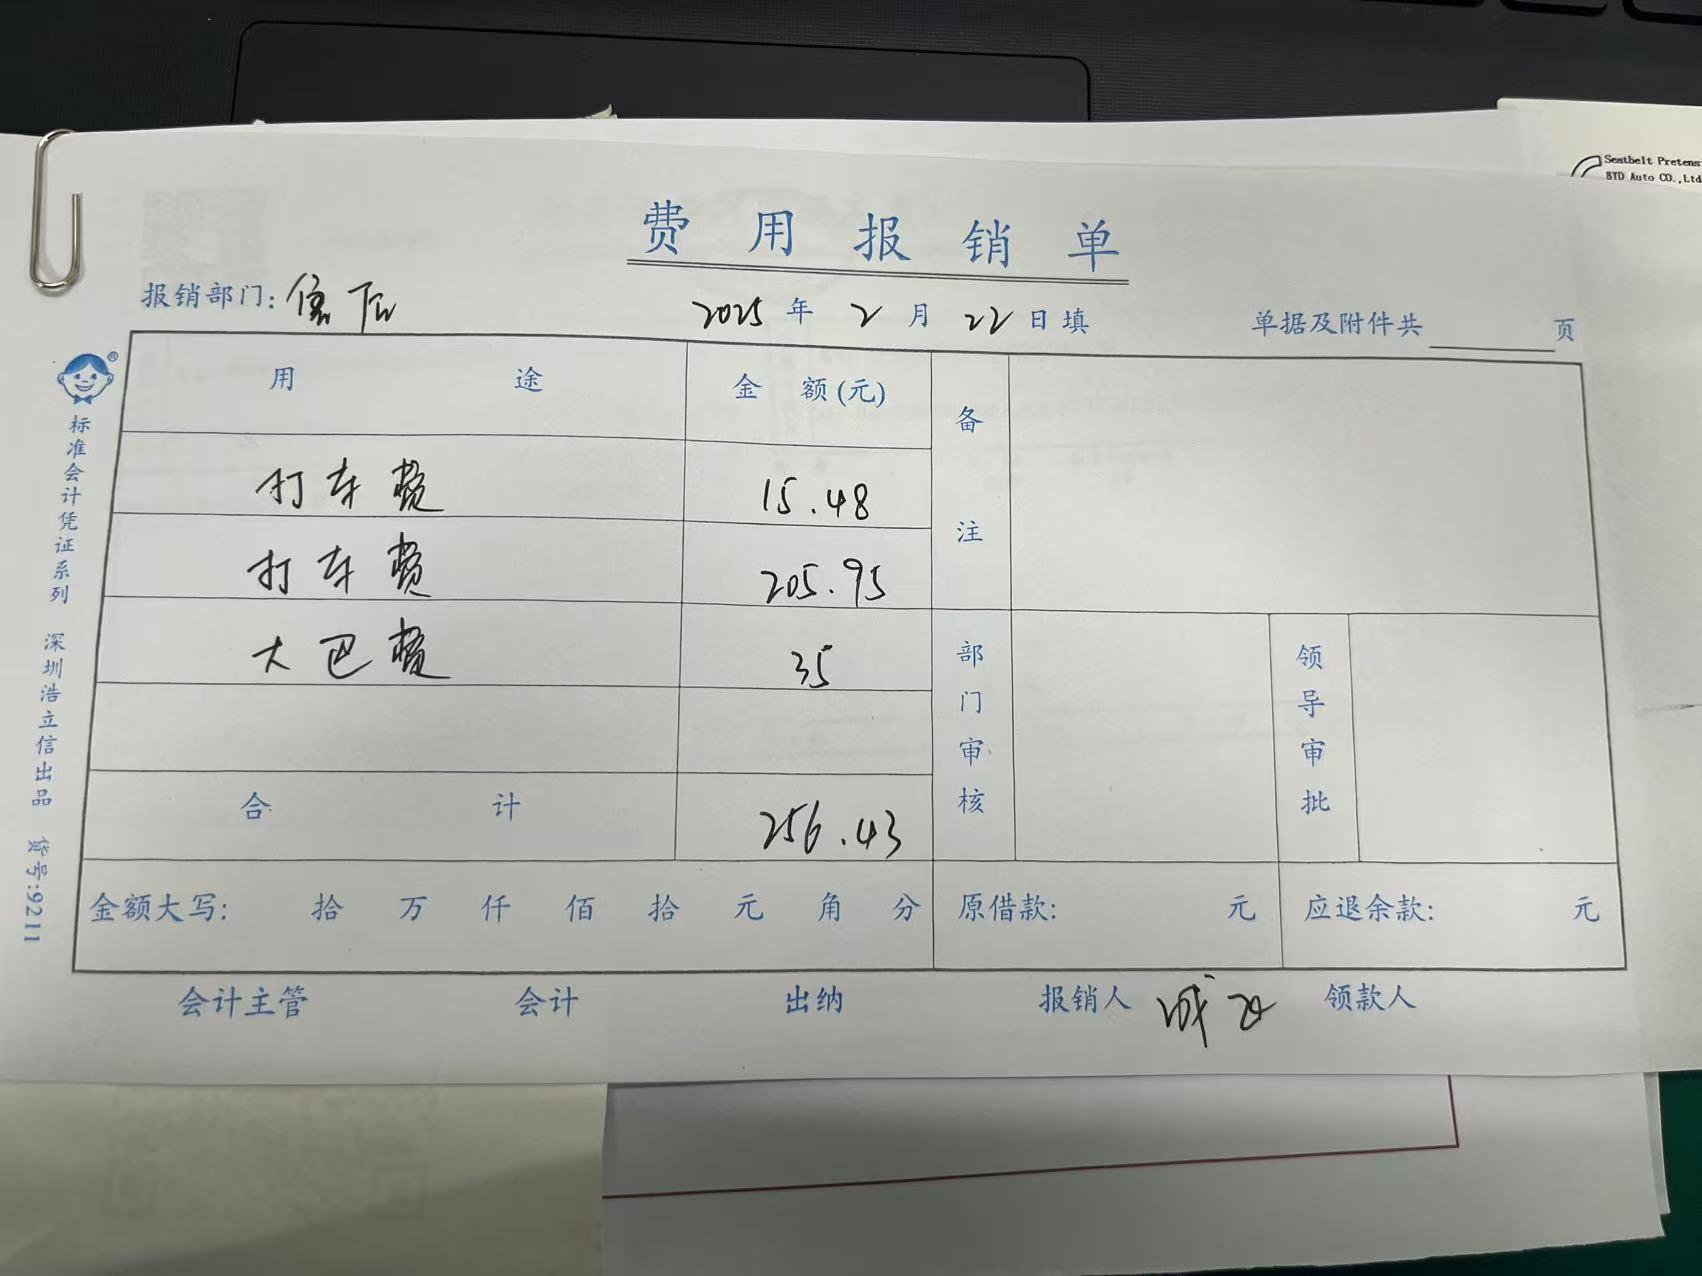 Seatbelt Pretens
BYD Auto CO.,Ltd
费用报销单
报销部门: 售后 2025年2月22日填 单据及附件共 页
用途 金额(元) 备注
打车费 15.48
打车费 205.95
大巴费 35 部门审核 领导审批
合计 256.43
金额大写: 拾 万 仟 佰 拾 元 角 分 原借款: 元 应退余款: 元
会计主管 会计 出纳 报销人 领款人
标准会计凭证系列 深圳浩立信出品 货号:9211
®